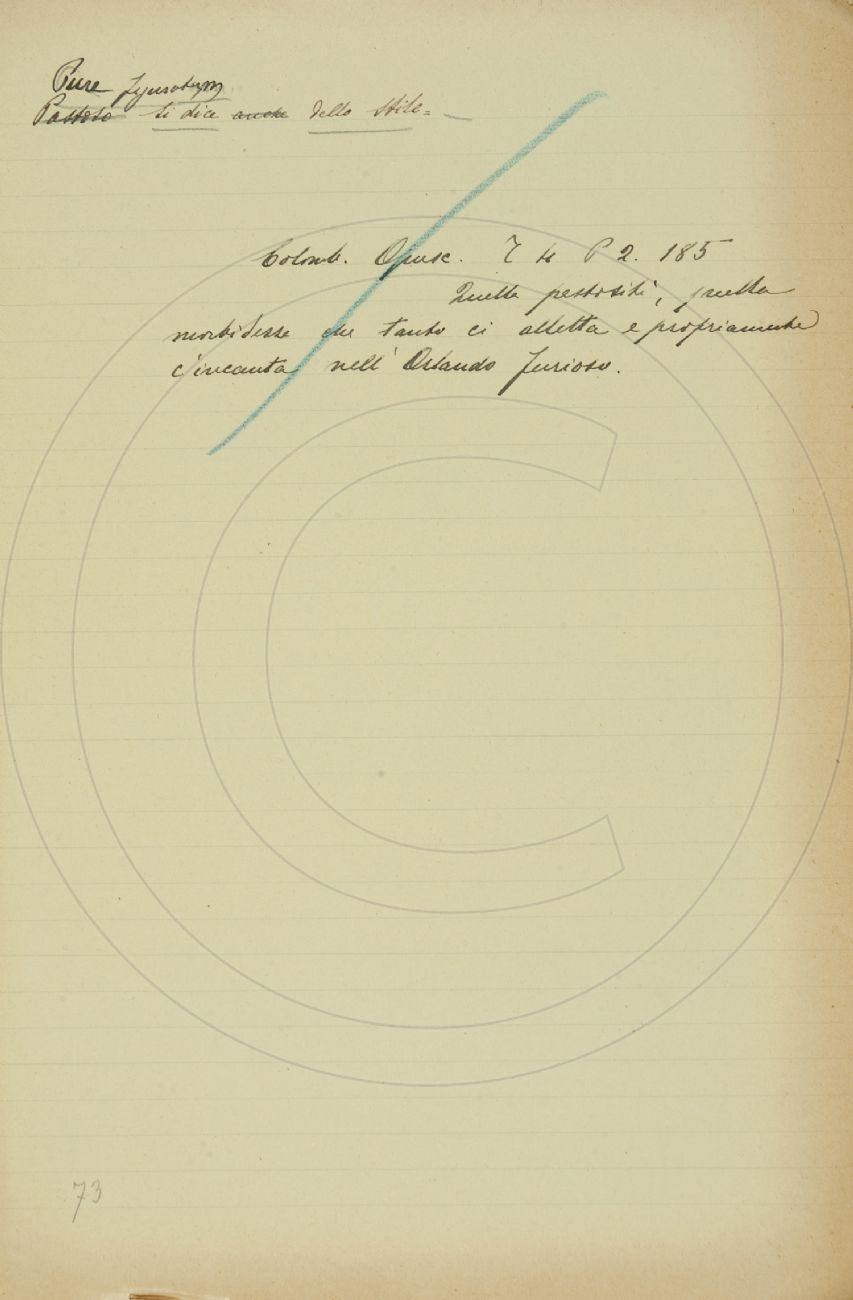 Pure figuratam
Pastoso si dice anche dello stile =
Colomb. Opusc. T 4 P 2. 185
Quella pastosità, quella
morbidezza che tanto ci alletta e propriamente
c'incanta nell' Orlando Furioso.
73